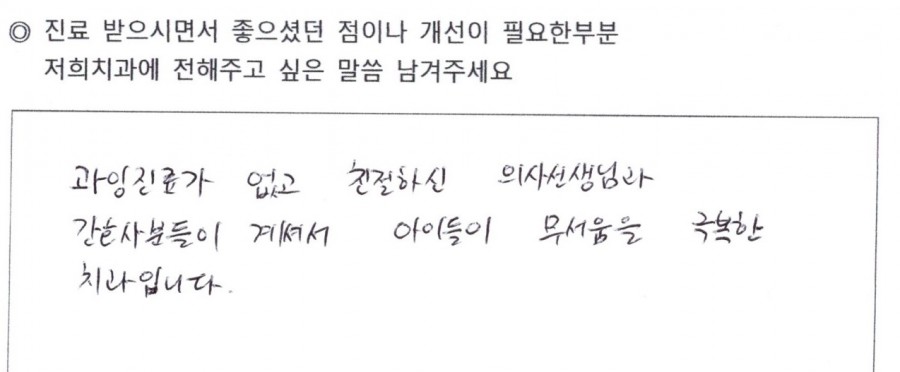 ◎ 진료 받으시면서 좋으셨던 점이나 개선이 필요한부분
저희치과에 전해주고 싶은 말씀 남겨주세요
과잉진료가 없고 친절하신 의사선생님과
간호사분들이 계셔서 아이들이 무서움을 극복한
치과입니다.